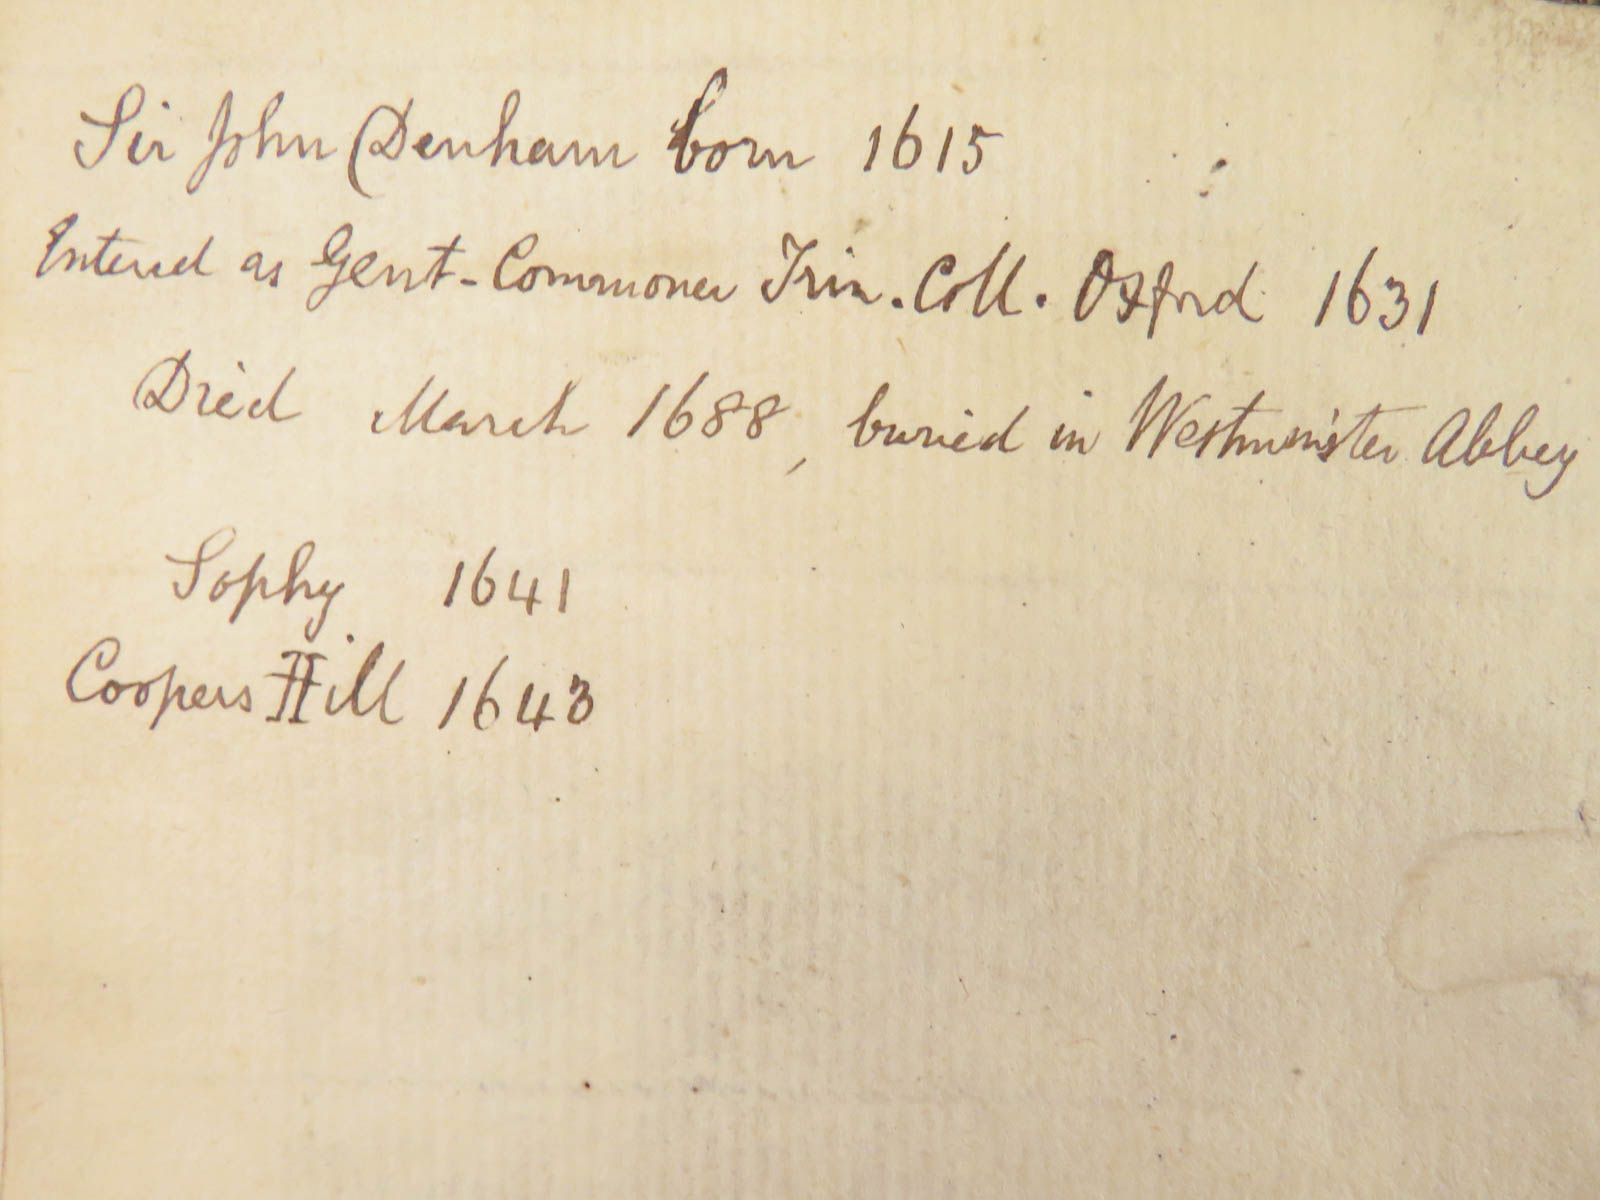 Sir John Denham born 1615
Entered as Gent-Commoner Trin. Coll. Oxford 1631
Died March 1688, buried in Westminster Abbey
Sophy 1641
Coopers Hill 1643